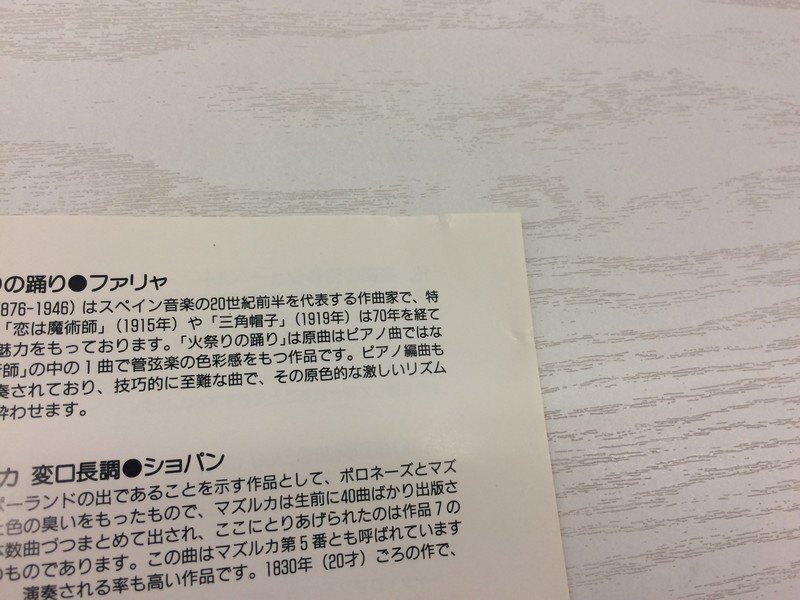 の踊り●ファリャ
876-1946）はスペイン音楽の20世紀前半を代表する作曲家で、特
「恋は魔術師」（1915年）や「三角帽子」（1919年）は70年を経て
魅力をもっております。「火祭りの踊り」は原曲はピアノ曲ではな
術師」の中の1曲で管弦楽の色彩感をもつ作品です。ピアノ編曲も
奏されており、技巧的に至難な曲で、その原色的な激しいリズム
酔わせます。
カ 変ロ長調●ショパン
ポーランドの出であることを示す作品として、ポロネーズとマズ
色の臭いをもったもので、マズルカは生前に40曲ばかり出版さ
数曲づつまとめて出され、ここにとりあげられたのは作品7の
のものであります。この曲はマズルカ第5番とも呼ばれています
演奏される率も高い作品です。1830年（20才）ごろの作で、